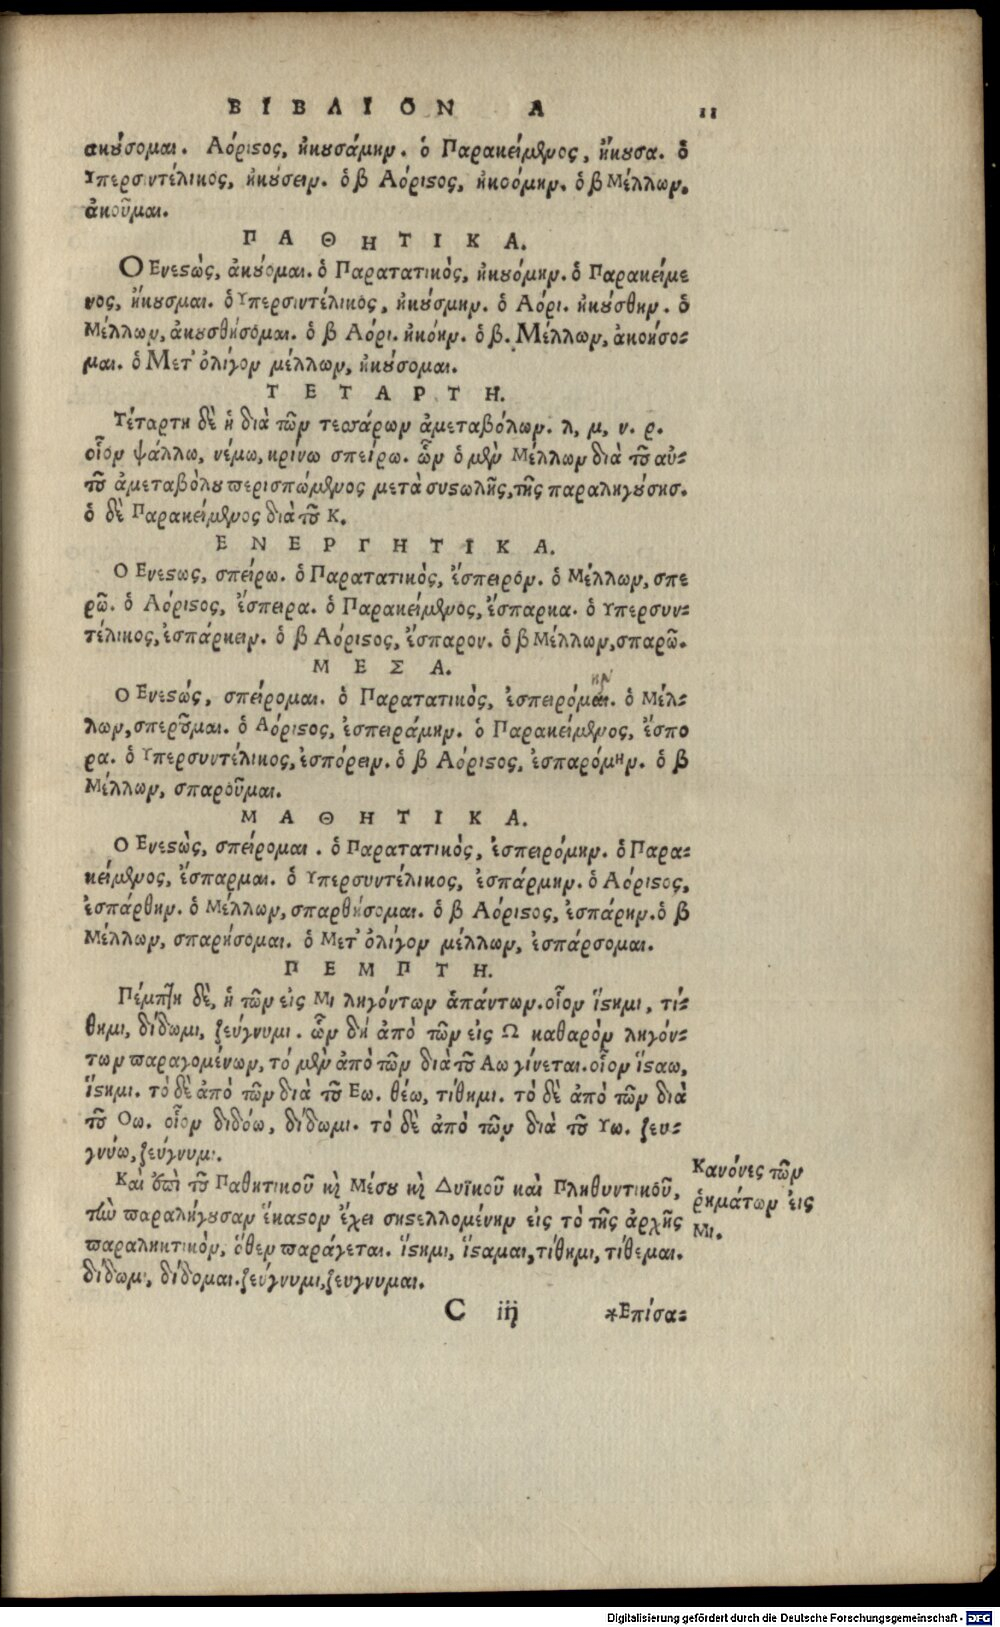 ΒΙΒΛΙΟΝ Α 11
ακούσομαι. Αόριςος, ἠκουσάμην. ὁ Παρακείμενος, ἤκουσα. ὁ
Υπερσιντέλικος, ἠκούσειν. ὁ β Αόριςος, ἠκοόμην. ὁ β Μέλλων,
ἀκοῦμαι.
ΠΑΘΗΤΙΚΑ.
Ο Ενεςὼς, ἀκούομαι. ὁ Παρατατικὸς, ἠκουόμην. ὁ Παρακείμε
νος, ἤκουσμαι. ὁ Υπερσιντέλικος, ἠκούσμην. ὁ Αόρι. ἠκούσθην. ὁ
Μέλλων, ἀκουσθήσομαι. ὁ β Αόρι. ἠκόην. ὁ β. Μέλλων, ἀκοήσο-
μαι. ὁ Μετ' ὀλίγον μέλλων, ἠκούσομαι.
ΤΕΤΑΡΤΗ.
Τέταρτη δὲ ἡ διὰ τῶν τεσσάρων ἀμεταβόλων. λ, μ, ν. ρ.
οἷον ψάλλω, νέμω, κρίνω σπείρω. ὧν ὁ μὲν Μέλλων διὰ τοῦ αὐ-
τοῦ ἀμεταβόλου περισπώμενος μετὰ συςωλῆς, τῆς παραληγούσης.
ὁ δὲ Παρακείμενος διὰ τοῦ Κ.
ΕΝΕΡΓΗΤΙΚΑ.
Ο Ενεςως, σπείρω. ὁ Παρατατικὸς, ἔσπειρον. ὁ Μέλλων, σπε
ρῶ. ὁ Αόριςος, ἔσπειρα. ὁ Παρακείμενος, ἔσπαρκα. ὁ Υπερσυν-
τέλικος, ἐσπάρκειν. ὁ β Αόριςος, ἔσπαρον. ὁ β Μέλλων, σπαρῶ.
ΜΕΣΑ.
ην
Ο Ενεςώς, σπείρομαι. ὁ Παρατατικὸς, ἐσπειρόμαι. ὁ Μέλ-
λων, σπεροῦμαι. ὁ Αόριςος, ἐσπειράμην. ὁ Παρακείμενος, ἔσπο
ρα. ὁ Υπερσυντέλικος, ἐσπόρειν. ὁ β Αόριςος, ἐσπαρόμην. ὁ β
Μέλλων, σπαροῦμαι.
ΜΑΘΗΤΙΚΑ.
Ο Ενεςὼς, σπείρομαι. ὁ Παρατατικὸς, ἐσπειρόμην. ὁ Παρα-
κείμενος, ἔσπαρμαι. ὁ Υπερσυντέλικος, ἐσπάρμην. ὁ Αόριςος,
ἐσπάρθην. ὁ Μέλλων, σπαρθήσομαι. ὁ β Αόριςος, ἐσπάρην. ὁ β
Μέλλων, σπαρήσομαι. ὁ Μετ' ὀλίγον μέλλων, ἐσπάρσομαι.
ΠΕΜΠΤΗ.
Πέμπτη δὲ, ἡ τῶν εἰς Μι ληγόντων ἁπάντων. οἷον ἵςημι, τί-
θημι, δίδωμι, ζεύγνυμι. ὧν δὴ ἀπὸ τῶν εἰς Ω καθαρὸν ληγόν-
των παραγομένων, τό μὲν ἀπὸ τῶν διὰ τοῦ Αω γίνεται. οἷον ἱςαω,
ἵςημι. τὸ δὲ ἀπὸ τῶν διὰ τοῦ Εω. θέω, τίθημι. τὸ δὲ ἀπὸ τῶν διὰ
τοῦ Οω. οἷον διδόω, δίδωμι. τὸ δὲ ἀπὸ τῶν διὰ τοῦ Υω. ζευ-
γνύω, ζεύγνυμι.
Καὶ ἐπὶ τοῦ Παθητικοῦ καὶ Μέσου καὶ Δυϊκοῦ καὶ Πληθυντικοῦ,
τὼ παραλήγουσαν ἕκαςον ἔχει σηςελλομένην εἰς τὸ τῆς ἀρχῆς
παραληκτικὸν, ὅθεν παράγεται. ἵςημι, ἵςαμαι, τίθημι, τίθεμαι.
δίδωμι, δίδομαι. ζεύγνυμι, ζευγνυμαι.
Κανόνες τῶν
ῥημάτων εἰς
Μι.
C iij *Επίσα-
Digitalisierung gefördert durch die Deutsche Forschungsgemeinschaft - DFG